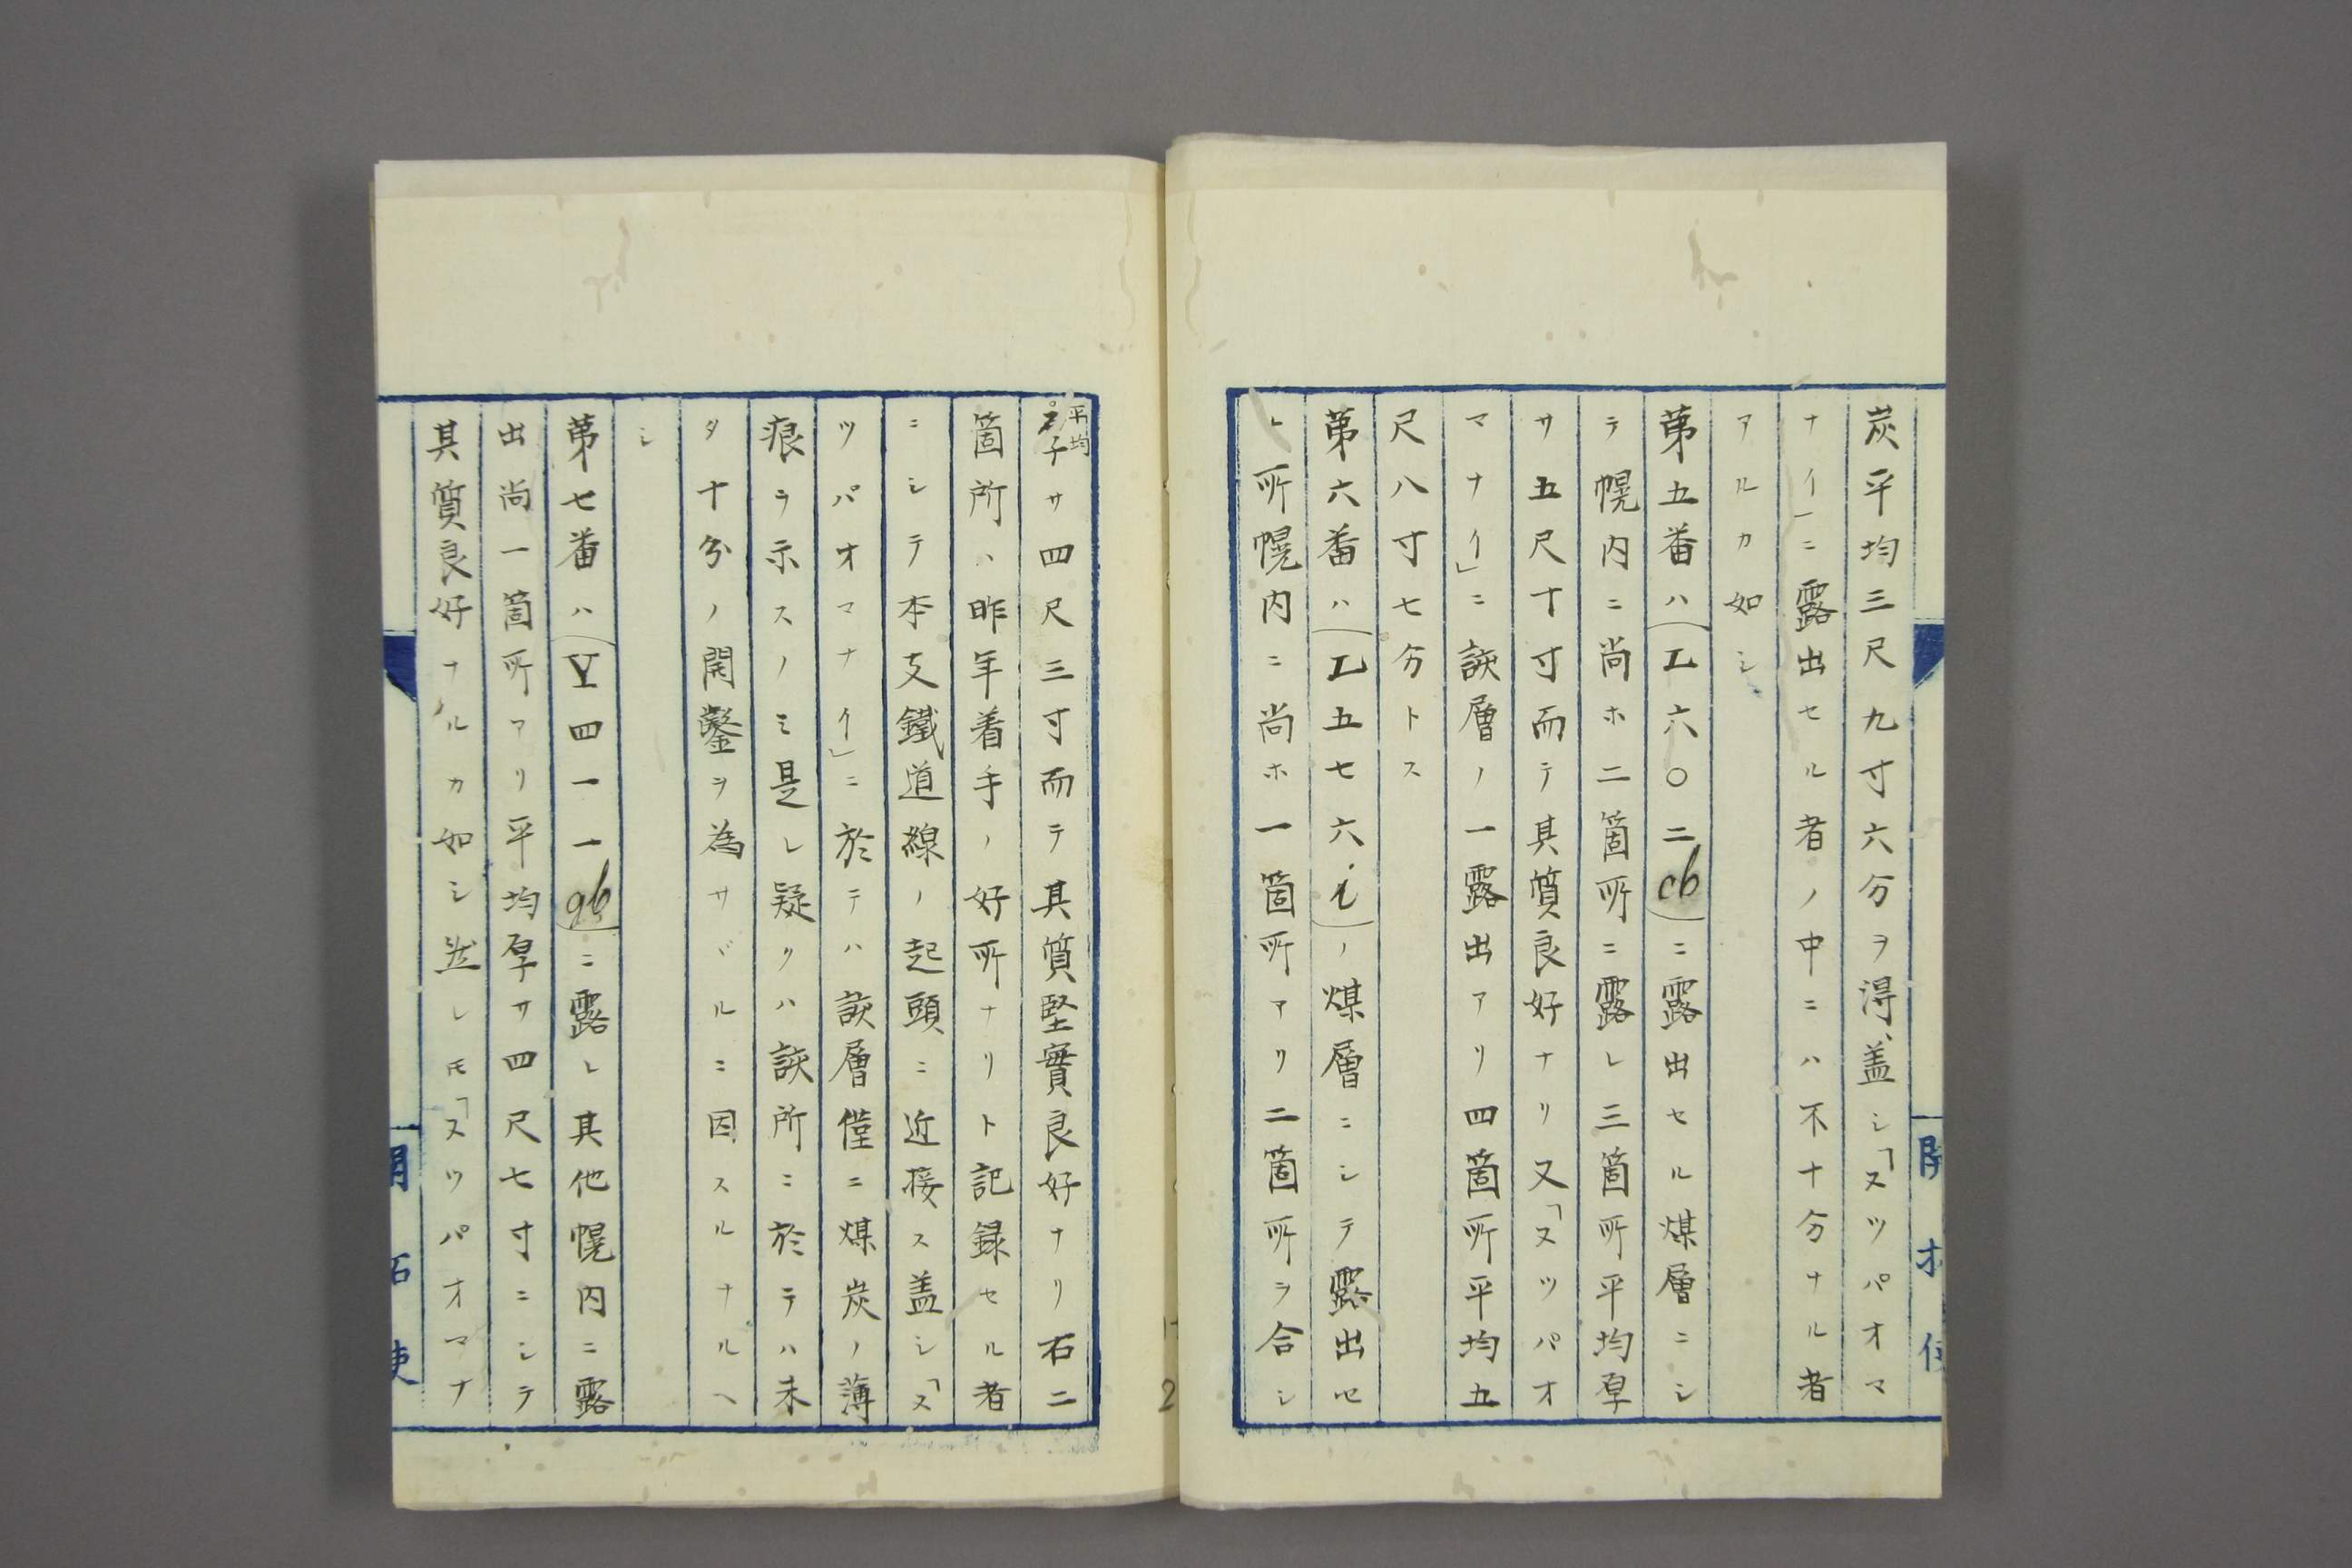 炭平均三尺九寸六分ヲ得、盖シ「ヌツパオマ
ナイ」ニ露出セル者ノ中ニハ不十分ナル者
アルカ如シ
第五番ハ(工六〇二cb)ニ露出セル煤層ニシ
テ幌内ニ尚ホ二箇所ニ露レ三箇所平均厚
サ五尺十寸而テ其質良好ナリ又「ヌツパオ
マナイ」ニ該層ノ一露出アリ四箇所平均五
尺八寸七分トス
第六番ハ(工五七六i)ノ煤層ニシテ露出セ
ル所幌内ニ尚ホ一箇所アリ二箇所ヲ合シ
平均
サ四尺三寸而テ其質堅實良好ナリ右二
箇所ハ昨年着手ノ好所ナリト記録セル者
ニシテ本支鐵道線ノ起頭ニ近接ス盖シ「ヌ
ツパオマナイ」ニ於テハ該層僅ニ煤炭ノ薄
痕ヲ示スノミ是レ疑クハ該所ニ於テハ未
タ十分ノ開鑿ヲ為サヾルニ因スルナルヘ
シ
第七番ハ(V四一一gb)ニ露レ其他幌内ニ露
出尚一箇所アリ平均厚サ四尺七寸ニシテ
其質良好ナルカ如シ然レ𪜈「ヌツパオマナ
開拓使